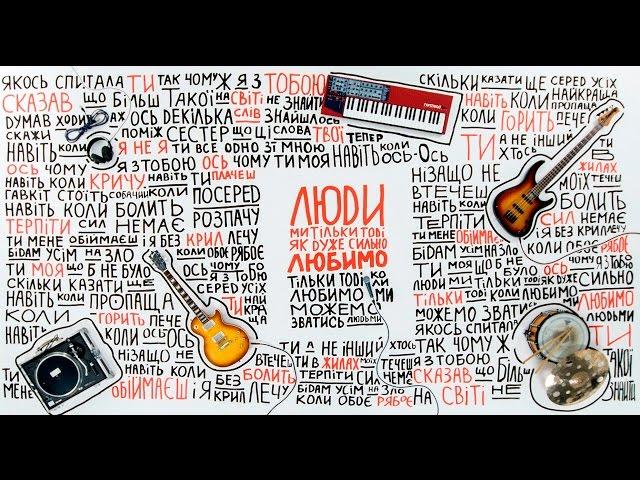 ЯКОСЬ СПИТАЛА ТИ ТАК ЧОМУ Ж Я З ТОБОЮ
СКАЗАВ ЩО БІЛЬШ ТАКОЇ НА СВІТІ НЕ ЗНАЙТИ
ДУМАВ ХОДИВ АЖ ОСЬ ДЕКІЛЬКА СЛІВ ЗНАЙШЛОСЬ
СКАЖИ ПОМІЖ СЕСТЕР ЩО ЦІ СЛОВА ТВОЇ ТЕПЕР
НАВІТЬ КОЛИ Я НЕ Я ТИ ВСЕ ОДНО ЗІ МНОЮ
ОСЬ ЧОМУ Я З ТОБОЮ ОСЬ ЧОМУ ТИ МОЯ НАВІТЬ КОЛИ ОСЬ-ОСЬ
НАВІТЬ КОЛИ КРИЧУ НАВІТЬ КОЛИ ТИ ПЛАЧЕШ
ГАВКІТ СТОЇТЬ СОБАЧИЙ КОЛИ ПОСЕРЕД
НАВІТЬ КОЛИ БОЛИТЬ РОЗПАЧУ
ТЕРПІТИ СИЛ НЕМАЄ
ТИ МЕНЕ ОБІЙМАЄШ І Я БЕЗ КРИЛ ЛЕЧУ
БІДАМ УСІМ НА ЗЛО КОЛИ ОБОЄ РЯБОЄ
ТИ МОЯ ЩО Б НЕ БУЛО ОСЬ ЧОМУ Я З ТОБОЮ
СКІЛЬКИ КАЗАТИ ЩЕ СЕРЕД УСІХ
НАВІТЬ КОЛИ ПРОПАЩА ТИ НАЙКРАЩА
КОЛИ ГОРИТЬ ПЕЧЕ
НАВІТЬ КОЛИ ОСЬ-ОСЬ
НІЗАЩО НЕ ВТЕЧЕШ
НАВІТЬ КОЛИ БОЛИТЬ
ТИ МЕНЕ ОБІЙМАЄШ І Я БЕЗ КРИЛ ЛЕЧУ
ЛЮДИ
МИ ТІЛЬКИ ТОДІ
ЯК ДУЖЕ СИЛЬНО
ЛЮБИМО
ТІЛЬКИ ТОДІ КОЛИ
ЛЮБИМО МИ
МОЖЕМО
ЗВАТИСЬ ЛЮДЬМИ
ТИ А НЕ ІНШИЙ ХТОСЬ
ТИ В ЖИЛАХ МОЇХ ТЕЧЕШ
ТЕРПІТИ СИЛ НЕМАЄ
БІДАМ УСІМ НА ЗЛО
КОЛИ ОБОЄ РЯБОЄ
СКІЛЬКИ КАЗАТИ ЩЕ СЕРЕД УСІХ
НАВІТЬ КОЛИ НАЙКРАЩА ПРОПАЩА
КОЛИ ГОРИТЬ ПЕЧЕ
ТИ А НЕ ІНШИЙ ХТОСЬ
НІЗАЩО НЕ ВТЕЧЕШ
В ЖИЛАХ МОЇХ ТЕЧЕШ
НАВІТЬ КОЛИ БОЛИТЬ
ТЕРПІТИ СИЛ НЕМАЄ
ТИ МЕНЕ ОБІЙМАЄШ І Я БЕЗ КРИЛ ЛЕЧУ
БІДАМ УСІМ НА ЗЛО КОЛИ ОБОЄ РЯБОЄ
ТИ МОЯ ЩО Б НЕ БУЛО ОСЬ ЧОМУ Я З ТОБОЮ
МИ ТІЛЬКИ ТОДІ КОЛИ ЛЮБИМО СИЛЬНО ЛЮБИМО
МОЖЕМО ЗВАТИСЬ ЛЮДЬМИ
ЯКОСЬ СПИТАЛА ТИ
ТАК ЧОМУ Ж Я З ТОБОЮ
СКАЗАВ ЩО БІЛЬШ ТАКОЇ
НА СВІТІ НЕ ЗНАЙТИ